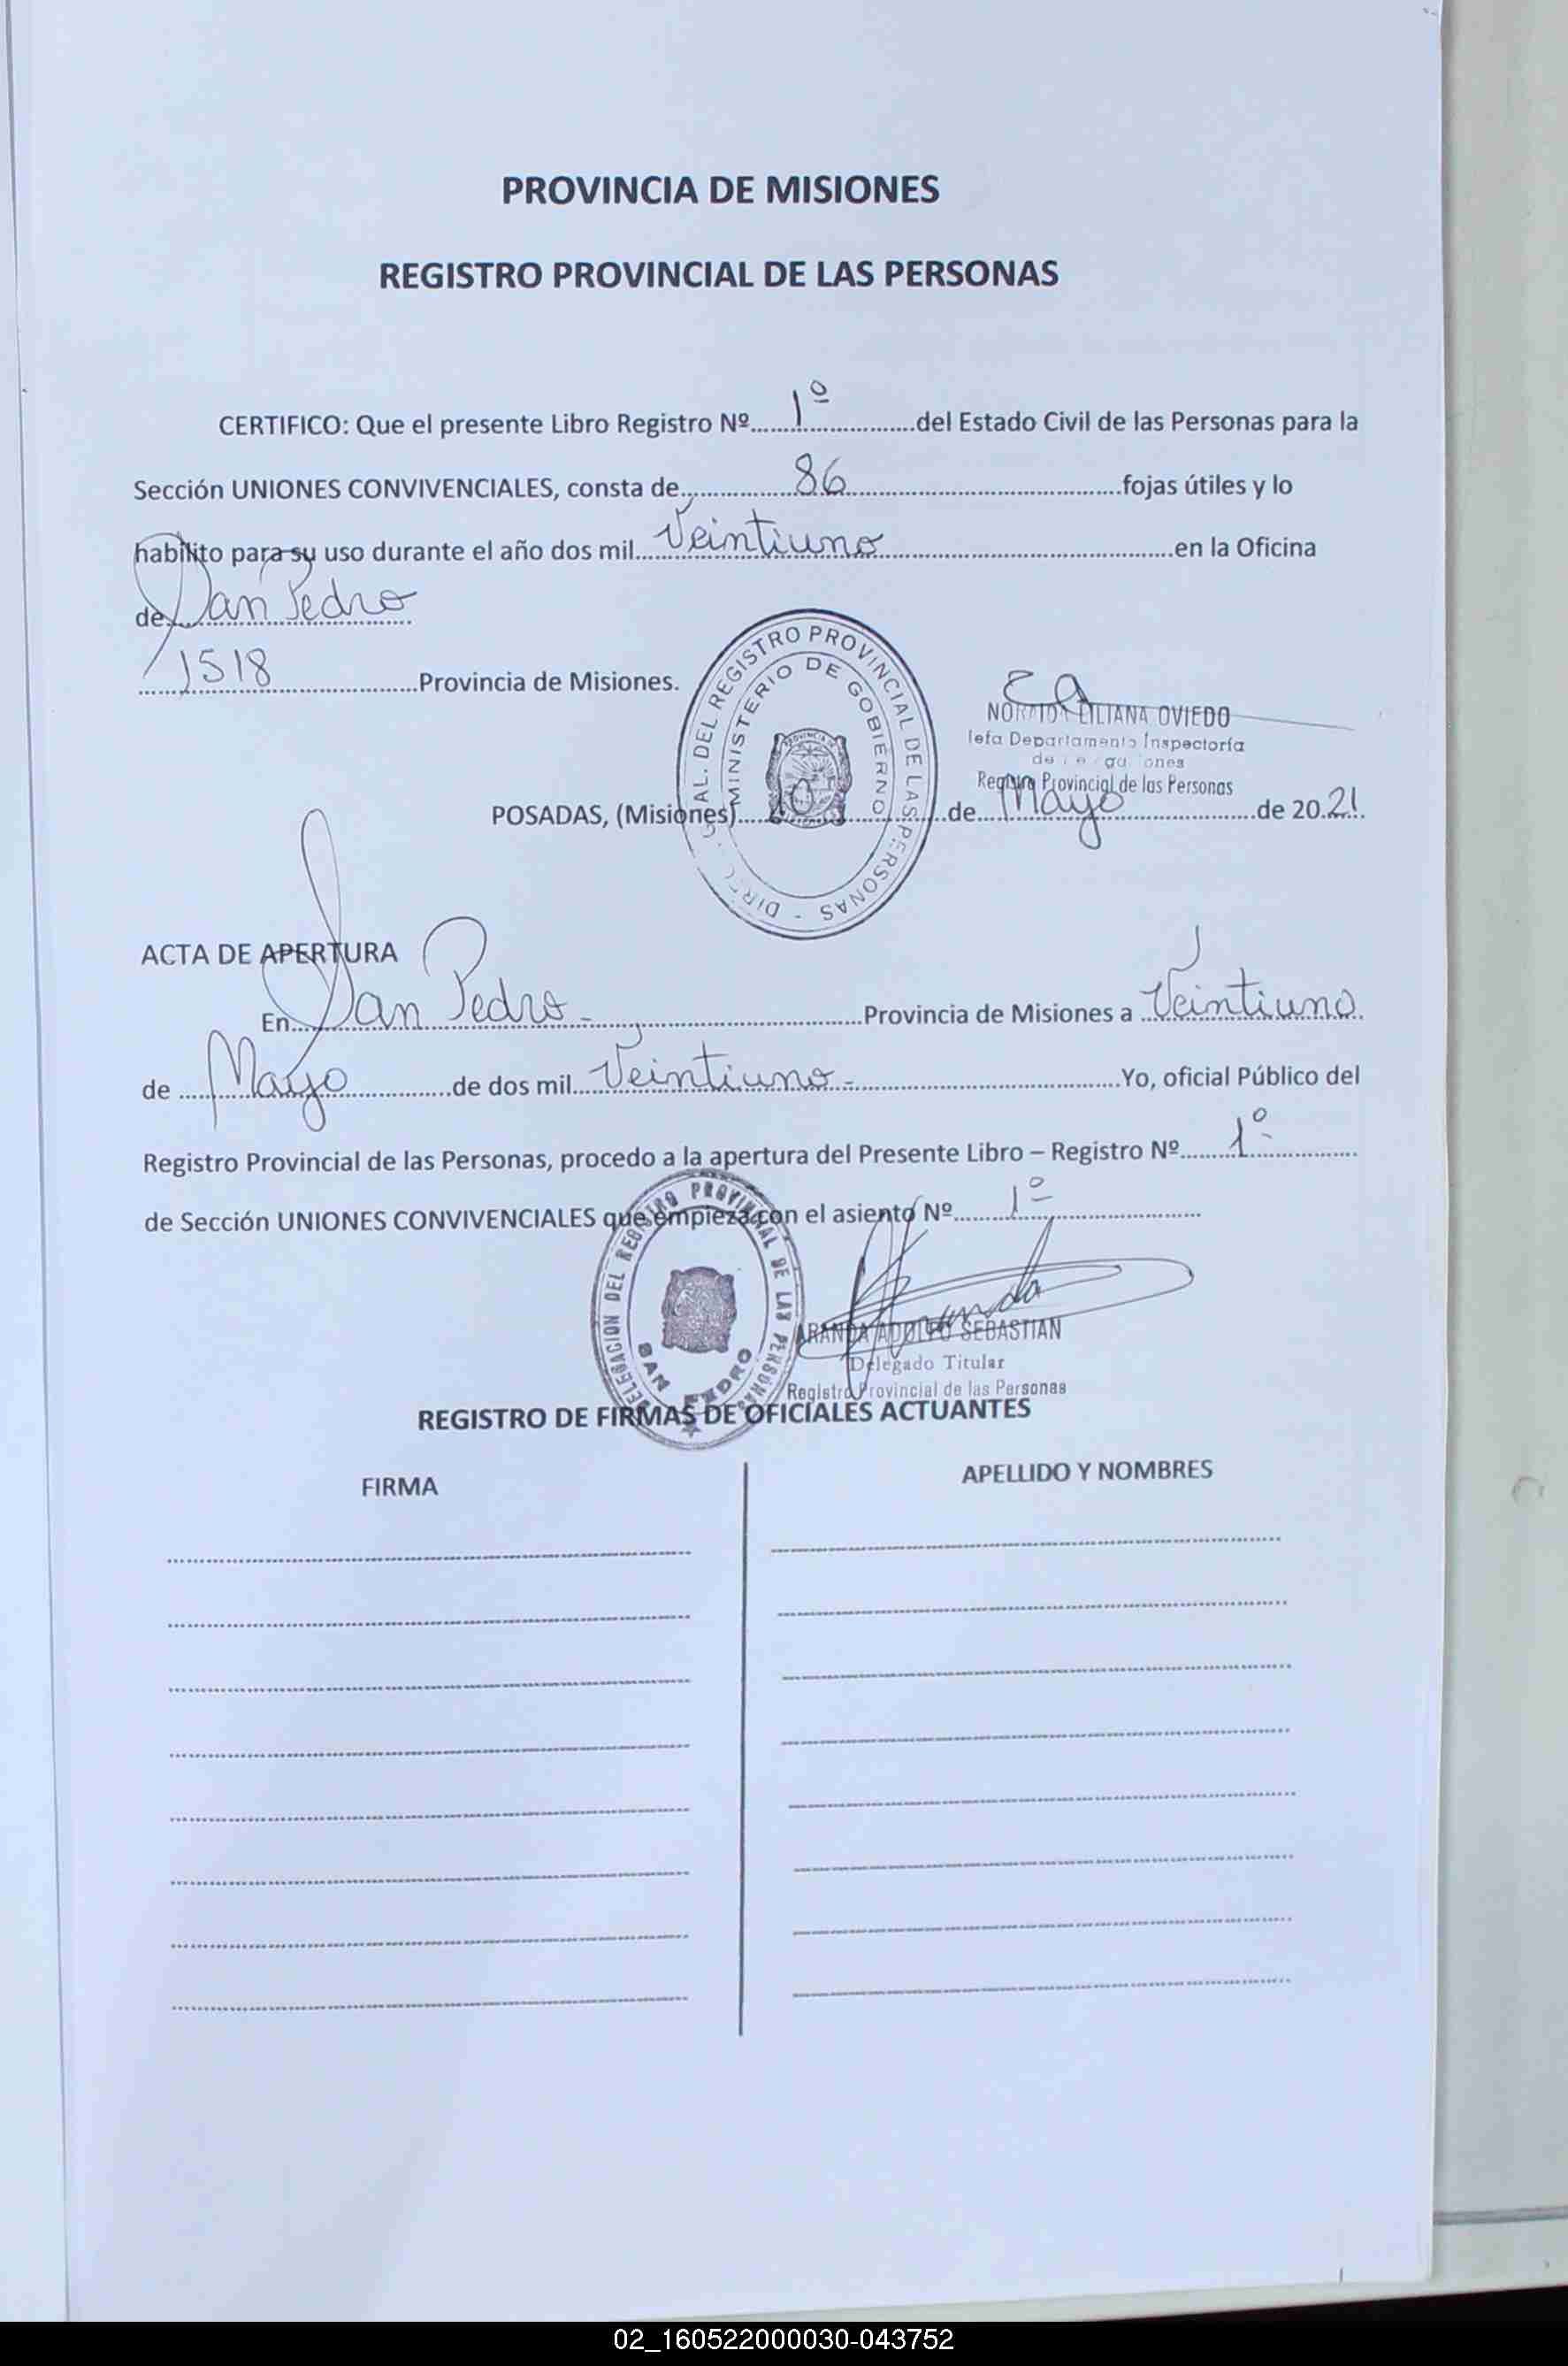 PROVINCIA DE MISIONES
REGISTRO PROVINCIAL DE LAS PERSONAS
CERTIFICO: Que el presente Libro Registro Nº 1º del Estado Civil de las Personas para la
Sección UNIONES CONVIVENCIALES, consta de 86 fojas útiles y lo
habilito para su uso durante el año dos mil Veintiuno en la Oficina
de San Pedro
1518 Provincia de Misiones.
DEL REGISTRO PROVINCIAL DE LAS PERSONAS -
MINISTERIO DE GOBIERNO
LILIANA OVIEDO
Jefa Departamento Inspectoría
Registro Provincial de las Personas
POSADAS, (Misiones) 10 de Mayo de 2021.
ACTA DE APERTURA
En San Pedro - Provincia de Misiones a Veintiuno
de Mayo de dos mil Veintiuno - Yo, oficial Público del
Registro Provincial de las Personas, procedo a la apertura del Presente Libro – Registro Nº 1º
de Sección UNIONES CONVIVENCIALES que empieza con el asiento Nº 1º
DELEGACION DEL REGISTRO PROVINCIAL DE LAS PERSONAS
SAN PEDRO
ARANDA ADOLFO SEBASTIAN
Delegado Titular
Registro Provincial de las Personas
REGISTRO DE FIRMAS DE OFICIALES ACTUANTES
FIRMA
APELLIDO Y NOMBRES
02_160522000030-043752